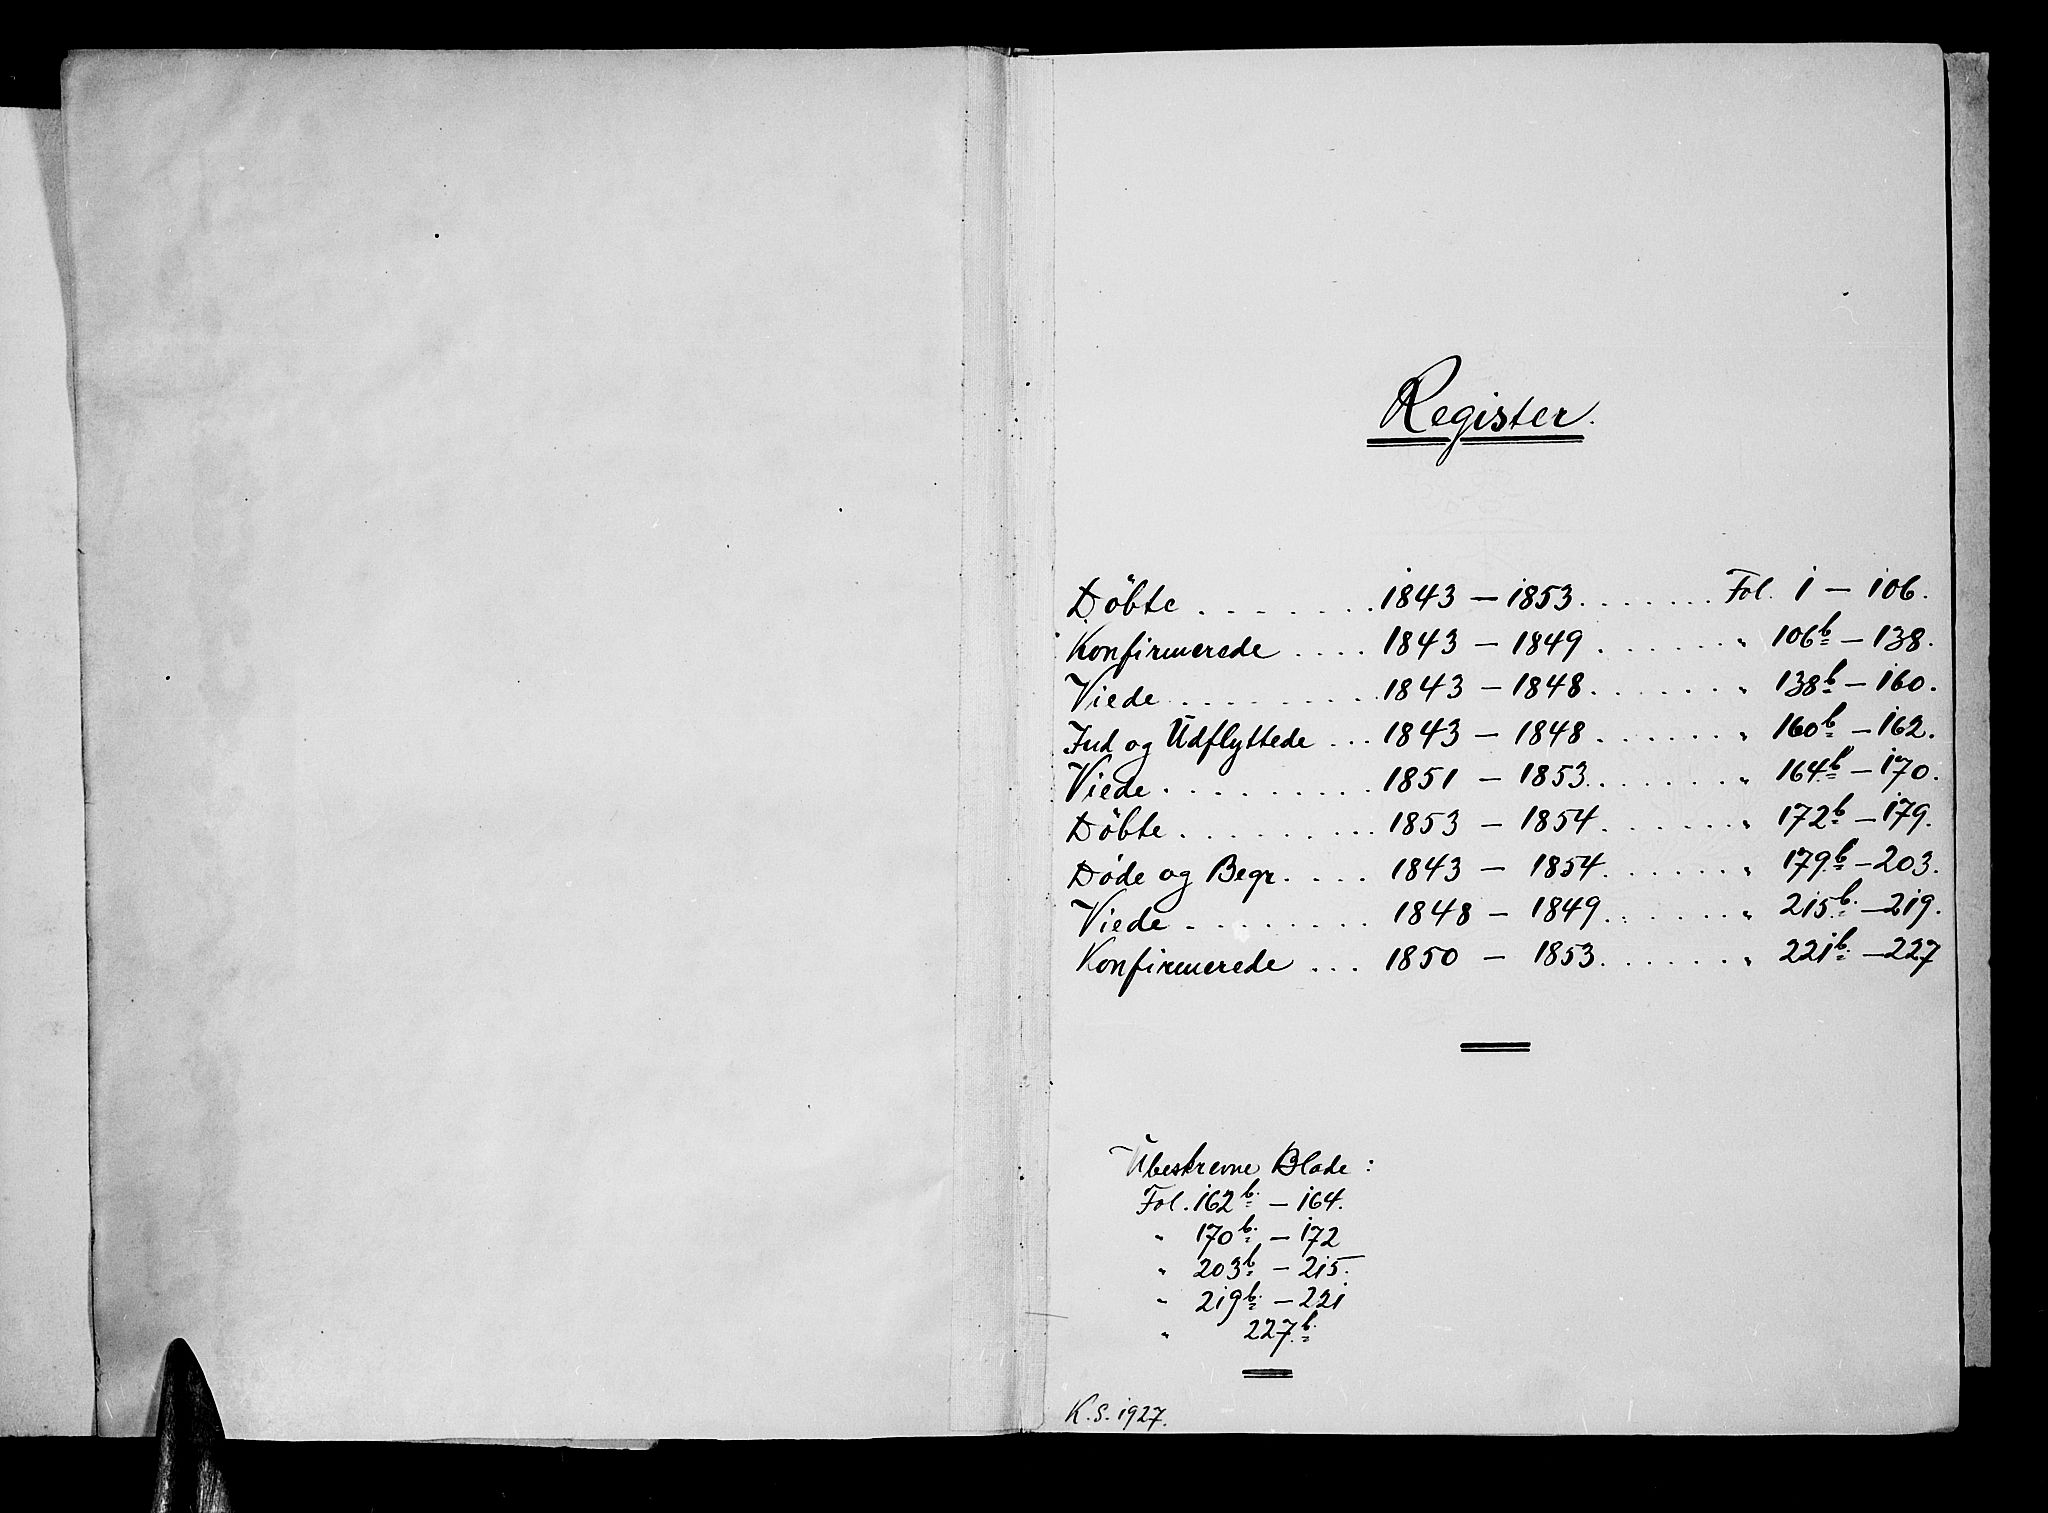 Register.
Döbte ........ 1843 – 1853 ....... Fol. 1 – 106.
Konfirmerede .... 1843 – 1849 ....... " 106b – 138.
Viede ......... 1843 – 1848 ....... " 138b – 160.
Ind og Udflyttede ... 1843 – 1848 ....... " 160b – 162.
Viede .......... 1851 – 1853 ....... " 164b – 170.
Döbte ......... 1853 – 1854 ....... " 172b – 179.
Döde og Begr. .... 1843 – 1854 ....... " 179b – 203.
Viede ........ 1848 – 1849 ....... " 215b – 219.
Konfirmerede ... 1850 – 1853 ....... " 221b – 227
Ubeskrevne Blade :
Fol. 162b – 164.
" 170b – 172
" 203b – 215.
" 219b – 221
" 227b
K. S. 1927.